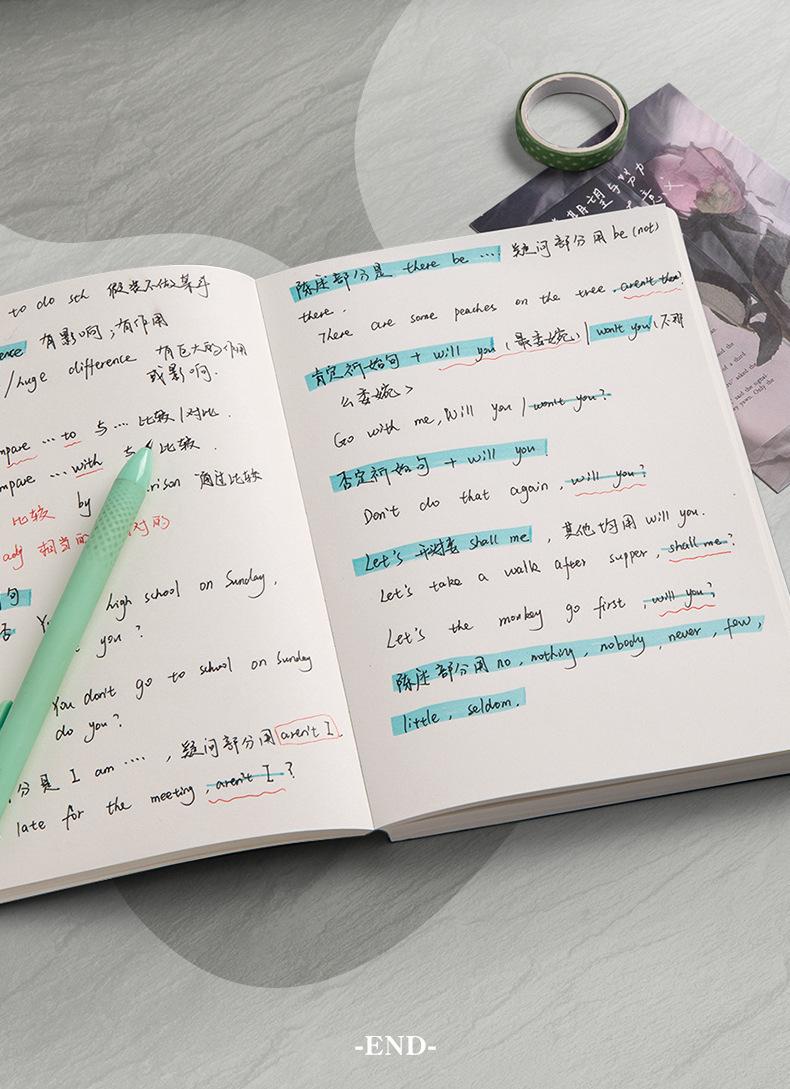 to do sth 假装不做某事
ence 有影响；有作用
/huge difference 有巨大的作用
或影响.
mpare … to 与… 比较/对比.
mpare … with 与 比较.
比较 by rison 通过比较
adj 相当的 对的
句
否 Yo high school on Sunday,
you?
You don't go to school on Sunday
do you?
分是 I am …. , 疑问部分用 aren't I.
late for the meeting, aren't I?
陈述部分是 there be …. 疑问部分用 be (not)
there.
There are some peaches on the tree, aren't there?
肯定祈始句 + will you (最委婉) | won't you (不那
么委婉>
Go with me, Will you / won't you?
否定祈始句 + will you
Don't do that again, will you?
Let's 开头 shall me, 其他均用 will you.
Let's take a walk after supper, shall me?
Let's the monkey go first, will you?
陈述部分用 no, nothing, nobody, never, few,
little, seldom.
期望与努力
-END-